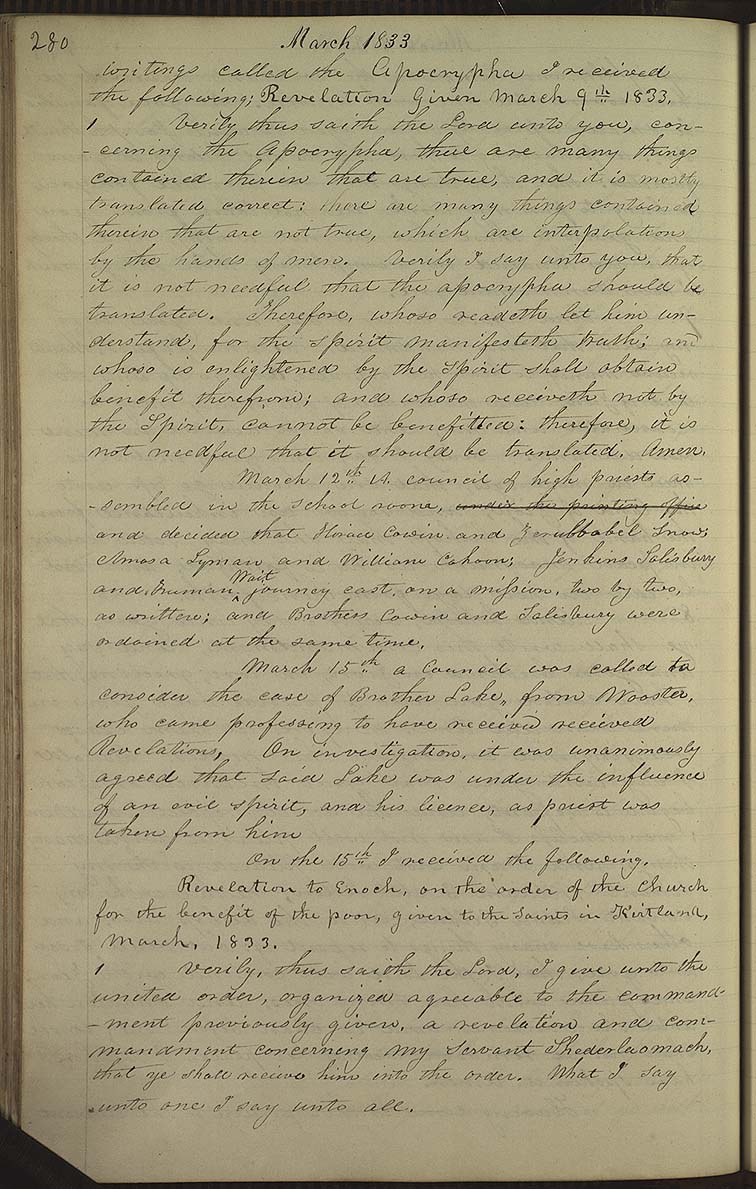 280 March 1833
writings called the Apocrypha I received
the following; Revelation Given March 9th 1833.
1 Verily, thus saith the Lord unto you, con-
-cerning the Apocrypha, there are many things
contained therein that are true, and it is mostly
translated correct: there are many things contained
therein that are not true, which are interpolations
by the hands of men. Verily I say unto you, that
it is not needful that the apocrypha should be
translated. Therefore, whoso readeth let him un-
derstand, for the spirit manifesteth truth; and
whoso is enlightened by the Spirit shall obtain
benefit therefrom; and whoso receiveth not by
the Spirit, cannot be benefitted: therefore, it is
not needful that it should be translated. Amen.
March 12th A. council of high priests as-
-sembled in the school room, under the printing office
and decided that Horace Cowin and Zerubbabel Snow;
Amasa Lyman and William Cahoon; Jenkins Salisbury
and Truman Wait, journey east, on a mission, two by two,
as written; and Brothers Cowin and Salisbury were
ordained at the same time.
March 15th a Council was called to
consider the case of Brother Lake, from Wooster,
who came professing to have received received
Revelations, On investigation, it was unanimously
agreed that said Lake was under the influence
of an evil spirit, and his licence, as priest was
taken from him
On the 15th I received the following.
Revelation to Enoch, on the order of the Church
for the benefit of the poor, given to the Saints in Kirtland,
March, 1833.
1 Verily, thus saith the Lord, I give unto the
united order, organized agreeable to the command-
-ment previously given, a revelation and com-
mandment concerning my servant Shederlaomach,
that ye shall receive him into the order. What I say
unto one I say unto all.